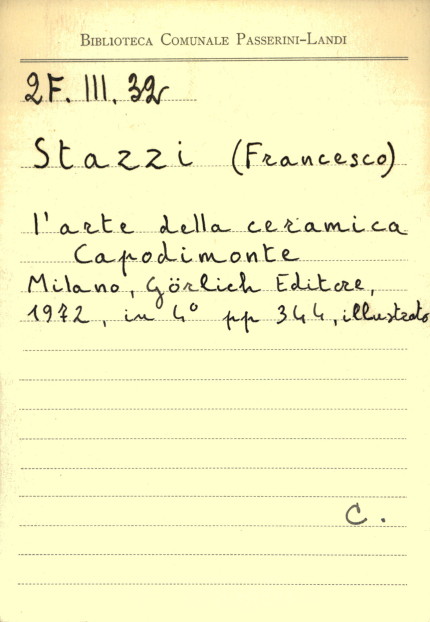 BIBLIOTECA COMUNALE PASSERINI-LANDI
2F. III. 32
Stazzi (Francesco)
l'arte della ceramica
Capodimonte
Milano, Görlich Editore,
1972, in 4° pp 344, illustrato
C.